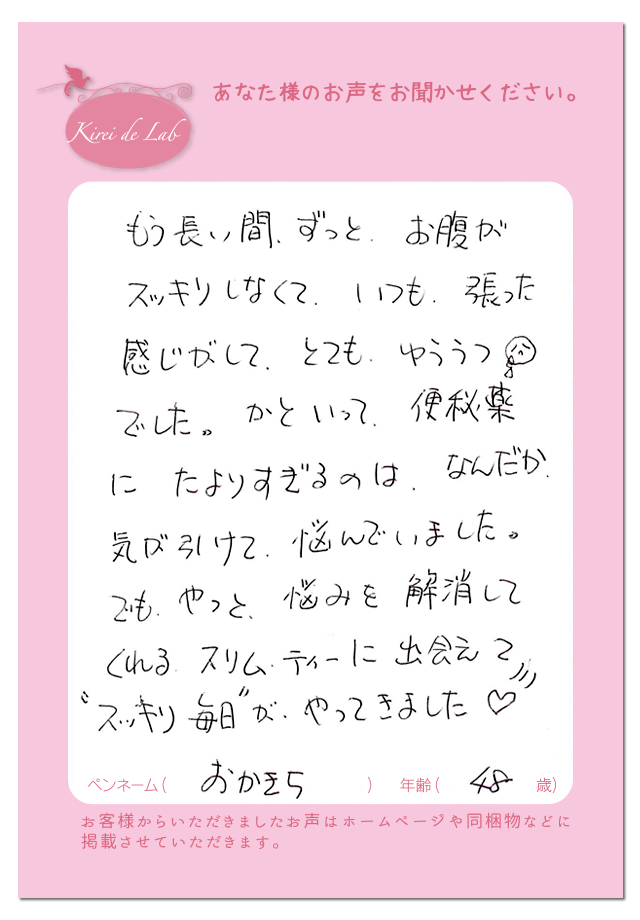 あなた様のお声をお聞かせください。
Kirei de Lab
もう長い間、ずっと、お腹が
スッキリしなくて、いつも、張った
感じがして、とても、ゆううつ
でした。かといって、便秘薬
に たよりすぎるのは、なんだか、
気が引けて、悩んでいました。
でも、やっと、悩みを 解消して
くれる、スリム・ティーに 出会えて
“スッキリ 毎日”が、やってきました♡
ペンネーム( おかきら ) 年齢( 48 歳)
お客様からいただきましたお声はホームページや同梱物などに
掲載させていただきます。